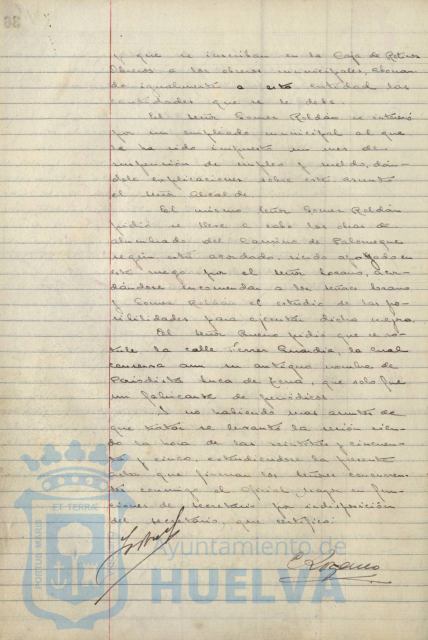 y que se inscriban en la Caja de Retiros
Obreros a los obreros municipales, abonan
do igualmente a esta entidad las
cantidades que se le debe.
El señor Gomez Roldán se interesó
por un empleado municipal al que
se ha sido impuesto un mes de
suspensión de empleo y sueldo, dán-
dole explicaciones sobre este asunto
el señor Alcalde.
El mismo señor Gomez Roldán
pidió se lleve a cabo las obras de
alumbrado del Camino de Palomeque
según está acordado, siendo apoyado en
este ruego por el señor Lozano, acor-
dándose encomendar a los señores Lozano
y Gomez Roldán el estudio de las po-
sibilidades para ejecutar dicha mejora.
El señor Bueno pidió que se ro-
tule la calle Ferrer Guardia, la cual
conserva aun su antiguo nombre de
Periodista Luca de Tena, que solo fue
un fabricante de periódicos.
Y no habiendo mas asuntos de
que tratar se levantó la sesión sien-
do la hora de las veintitres y cincuen-
ta y cinco, extendiendose la presente
acta que firman los señores concurren-
tes conmigo el Oficial en fun-
ciones de secretario por indisposición
del secretario, que certifico:
E. Lozano
PORTUS MARIS ET TERRAE
Ayuntamiento de
HUELVA